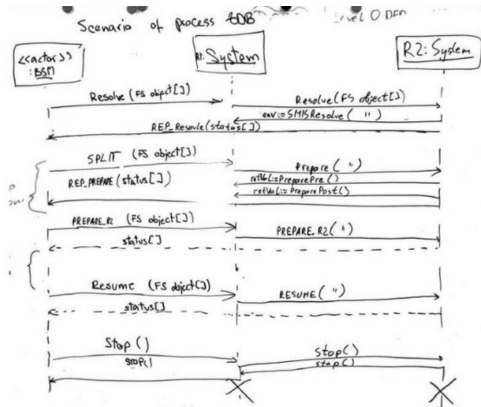 Scenario of process EDB
Level 0 DFD
<<actor>>
:BSM
R1: System
R2: System
Resolve (FS object[])
Resolve (FS object[])
env:=SMISResolve ( " )
REP_Resolve(status[])
SPLIT (FS object[])
Prepare ( " )
REP_PREPARE (status[])
retVal:=PreparePre()
retVal:=PreparePost()
PREPARE_R2 (FS object[])
PREPARE_R2( " )
status[]
Resume (FS object[])
RESUME( " )
status[]
Stop ()
Stop()
stop()
stop()